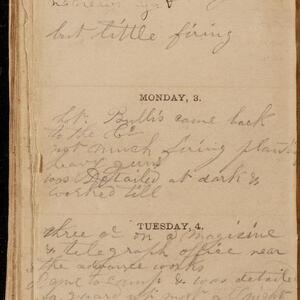 but little firing
MONDAY, 3.
Lt. Bullis came back
to the Co
not much firing planted
heavy guns
was Detailed at dark &
worked till
TUESDAY, 4.
three oc on a Magizine
& telegraph office near
the advance works
came to camp & was detaile